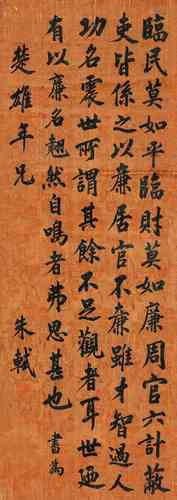 臨民莫如平臨財莫如廉周官六計蔽
吏皆係之以廉居官不廉雖才智過人
功名震世所謂其餘不足觀者耳世迺
有以廉名翹然自鳴者弗思甚也 書為
楚雄年兄 朱軾